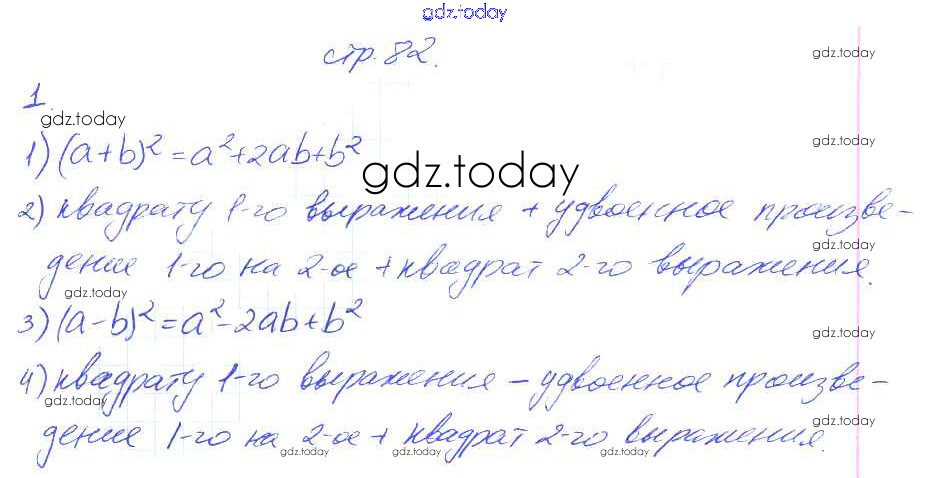 gdz.today
стр. 82.
gdz.today
1.
gdz.today
1) (a+b)²=a²+2ab+b²
gdz.today
gdz.today
2) квадрату 1-го выражения + удвоенное произве-
gdz.today
gdz.today
дение 1-го на 2-ое + квадрат 2-го выражения.
gdz.today
gdz.today
3) (a-b)²=a²-2ab+b²
gdz.today
4) квадрату 1-го выражения - удвоенное произве-
gdz.today
gdz.today
дение 1-го на 2-ое + квадрат 2-го выражения.
gdz.today
gdz.today
gdz.today